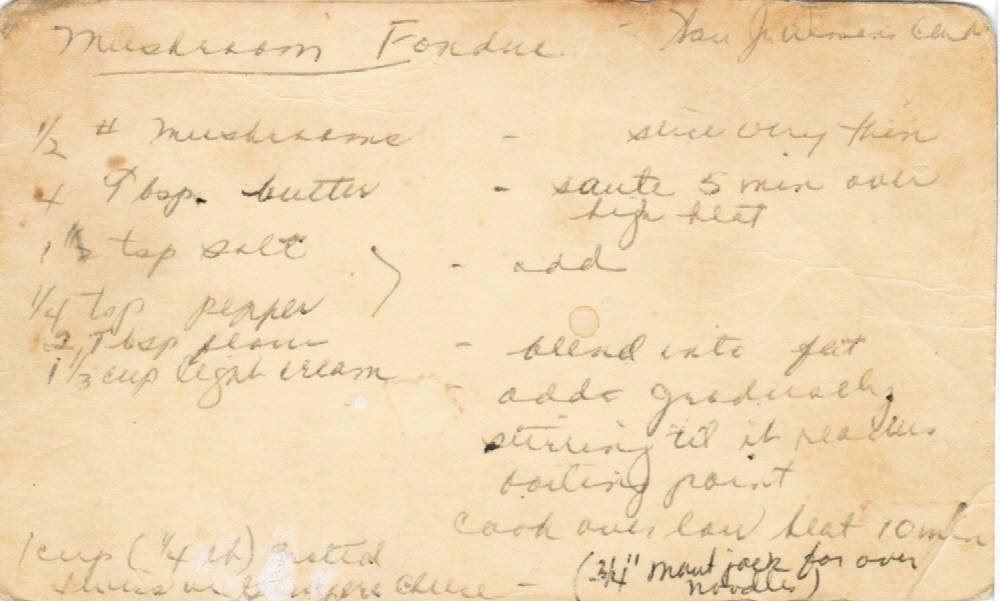 Mushroom Fondue -
1/2 # mushrooms - slice very thin
4 Tbsp. butter - saute 5 min over
high heat
tsp salt ) - add
1/4 tsp pepper
2 Tbsp flour - blend into fat
1 1/3 cup light cream - add gradually,
stirring til it reaches
boiling point
cook over low heat 10 min
1 cup (1/4 lb) grated
Swiss or Gruyere Cheese - (3/4" mont jack for over
noodles)